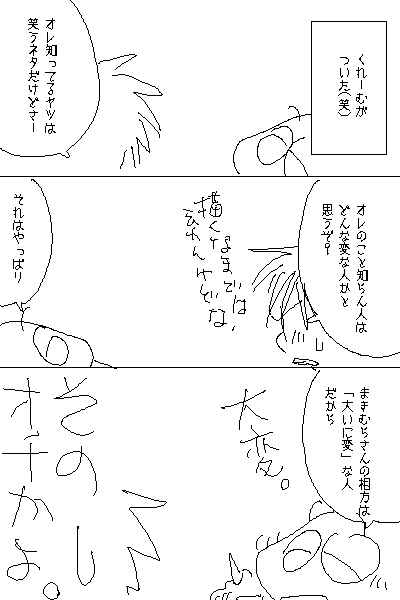 くれーむが
ついた(笑)
オレ知ってるヤツは
笑うネタだけどさー
オレのこと知らん人は
どんな変な人かと
思うぞ？
描くなまでは、
云わんけどな
それはやっぱり
まきむらさんの相方は
「大いに変」な人
だから
大変。
そのし
オチかよ。